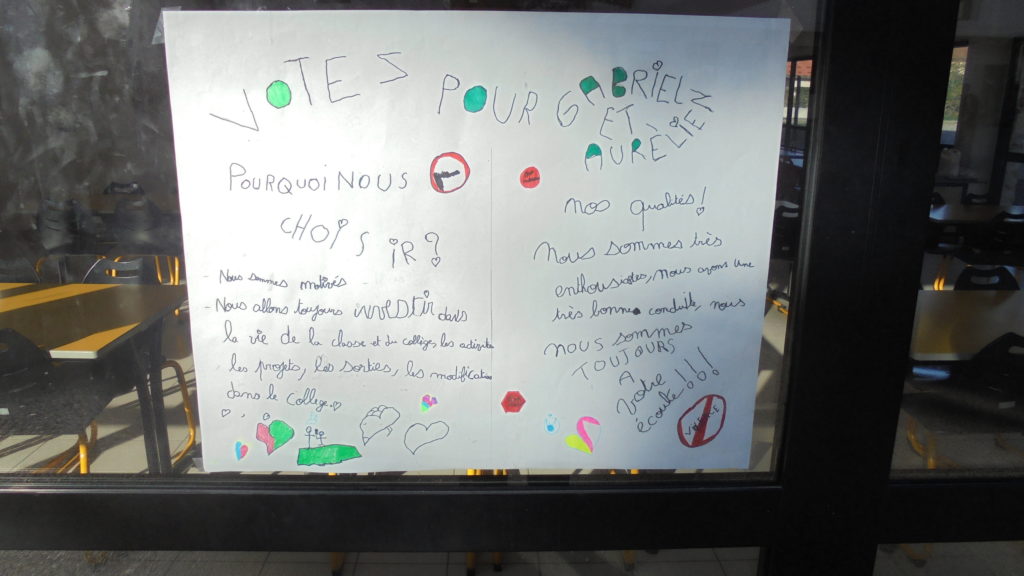 VOTES POUR GABRIEL
ET
AURÈLIEN
POURQUOI NOUS
CHOISIR?
- Nous sommes motivés
- Nous allons toujours investir dans
la vie de la classe et du collège, les activités
les projets, les sorties, les modification
dans le Collège.
nos qualités!
Nous sommes très
enthousiastes, nous avons une
très bonne conduite, nous
NOUS SOMMES
TOUJOURS
A
votre
écoute!!!
VIOLENCE